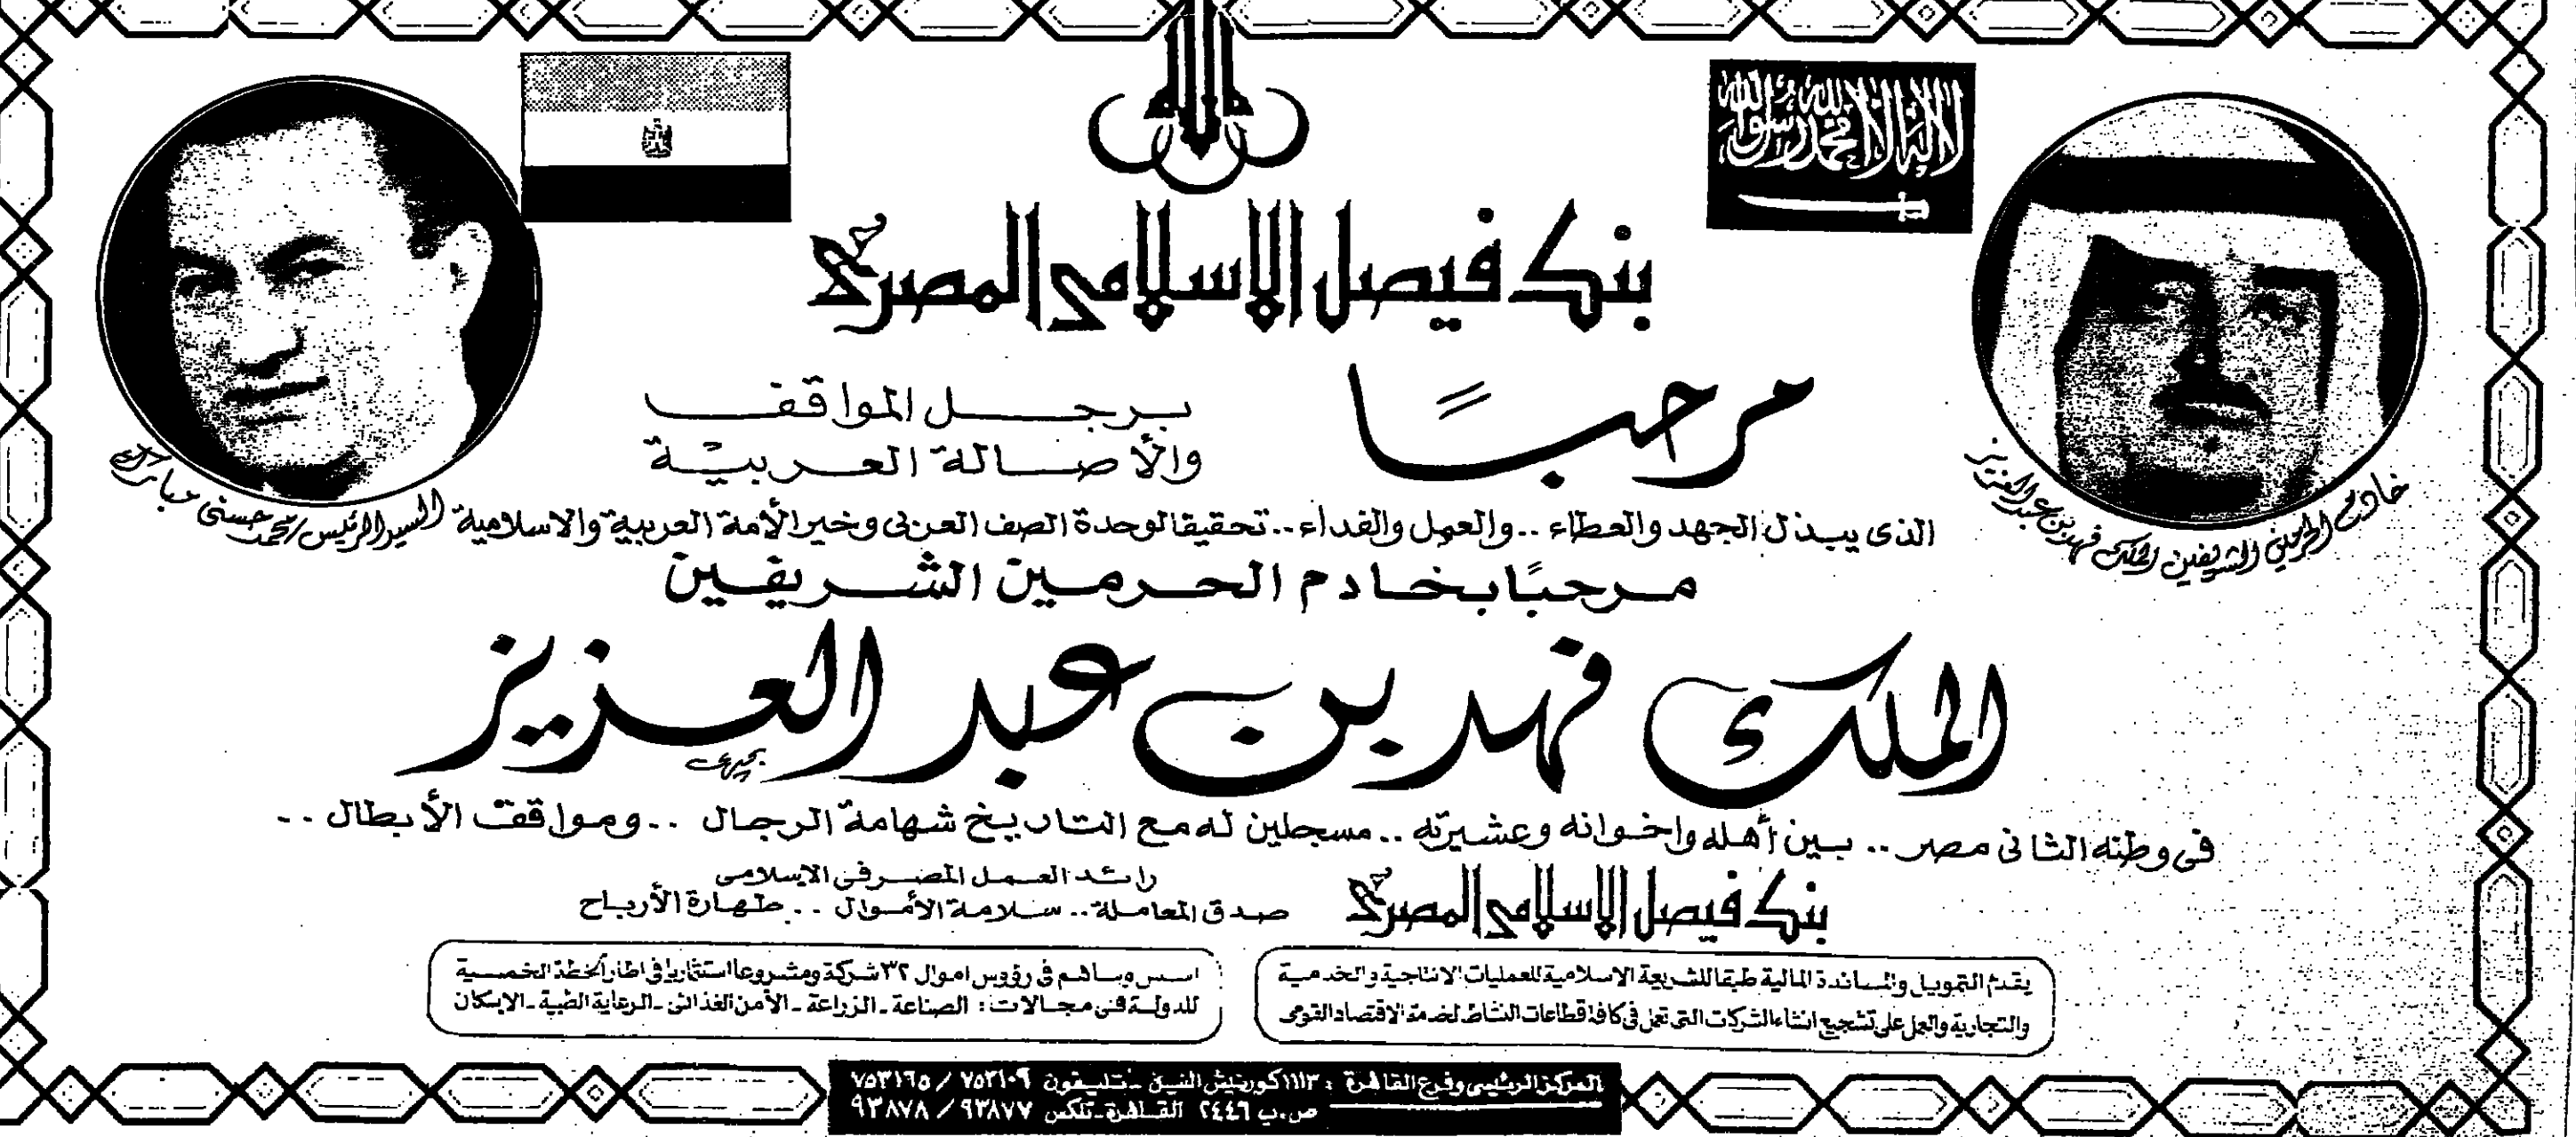 لا إله إلا الله محمد رسول الله
بنك فيصل الإسلامى المصرى
مرحبًا
برجل المواقف
والأصالة العربية
خادم الحرمين الشريفين الملك فهد بن عبد العزيز
السيد الرئيس / محمد حسنى مبارك
الذى يبذل الجهد والعطاء .. والعمل والفداء .. تحقيقا لوحدة الصف العربى وخير الأمة العربية والاسلامية
مرحبًا بخادم الحرمين الشريفين
الملك فهد بن عبد العزيز
فى وطنه الثانى مصر .. بين أهله واخوانه وعشيرته .. مسجلين له مع التاريخ شهامة الرجال .. ومواقف الأبطال ..
بنك فيصل الإسلامى المصرى
رائد العمل المصرفى الإسلامى
صدق المعاملة .. سلامة الأموال .. طهارة الأرباح
يقدم التمويل والمساندة المالية طبقا للشريعة الاسلامية للعمليات الانتاجية والخدمية
والتجارية والعمل على تشجيع انشاء الشركات التى تعمل فى كافة قطاعات النشاط لخدمة الاقتصاد القومى
اسس وساهم فى رؤوس اموال ٣٢ شركة ومشروعا استثماريا فى اطار الخطة الخمسية
للدولة فى مجالات : الصناعة - الزراعة - الأمن الغذائى - الرعاية الطبية - الإسكان
المركز الرئيسى وفرع القاهرة : ١١١٣ كورنيش النيل - تليفون ٧٥٢١٠٩ / ٧٥٣١٦٥
ص.ب ٢٤٤٦ القاهرة - تلكس ٩٣٨٧٧ / ٩٣٨٧٨